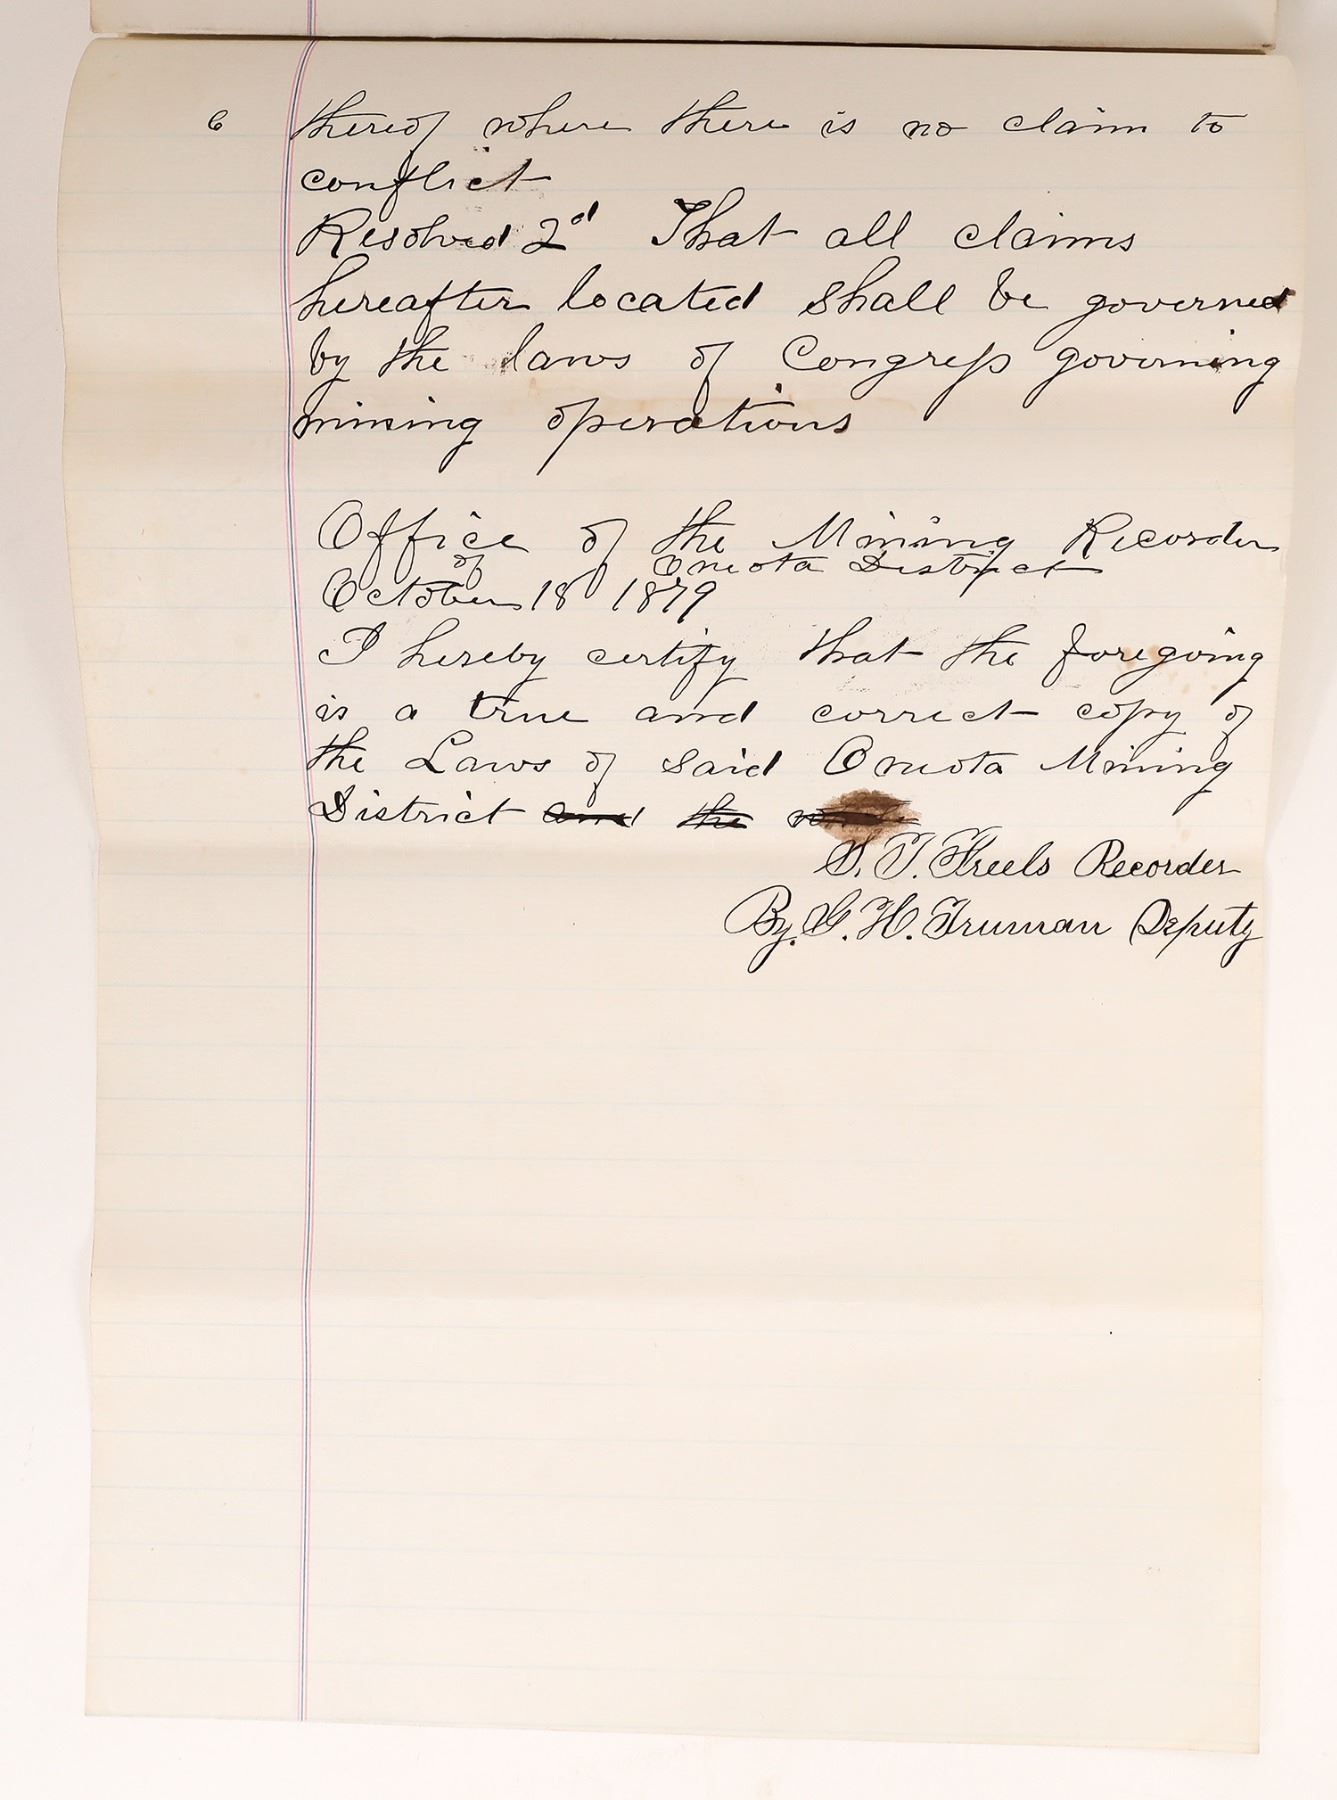 6
thereof where there is no claim to
conflict
Resolved 2d That all claims
hereafter located shall be governed
by the laws of Congress governing
mining operations
Office of the Mining Recorder
of Oneota District
October 18 1879
I hereby certify that the foregoing
is a true and correct copy of
the Laws of said Oneota Mining
District and the
S. T. Freels Recorder
By. G. H. Truman Deputy